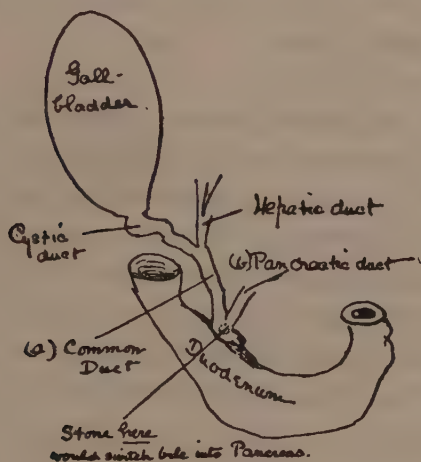 Gall-
bladder.
Hepatic duct
Cystic
duct
(b) Pancreatic duct
(a) Common
Duct
Duodenum
Stone here
would switch bile into Pancreas.